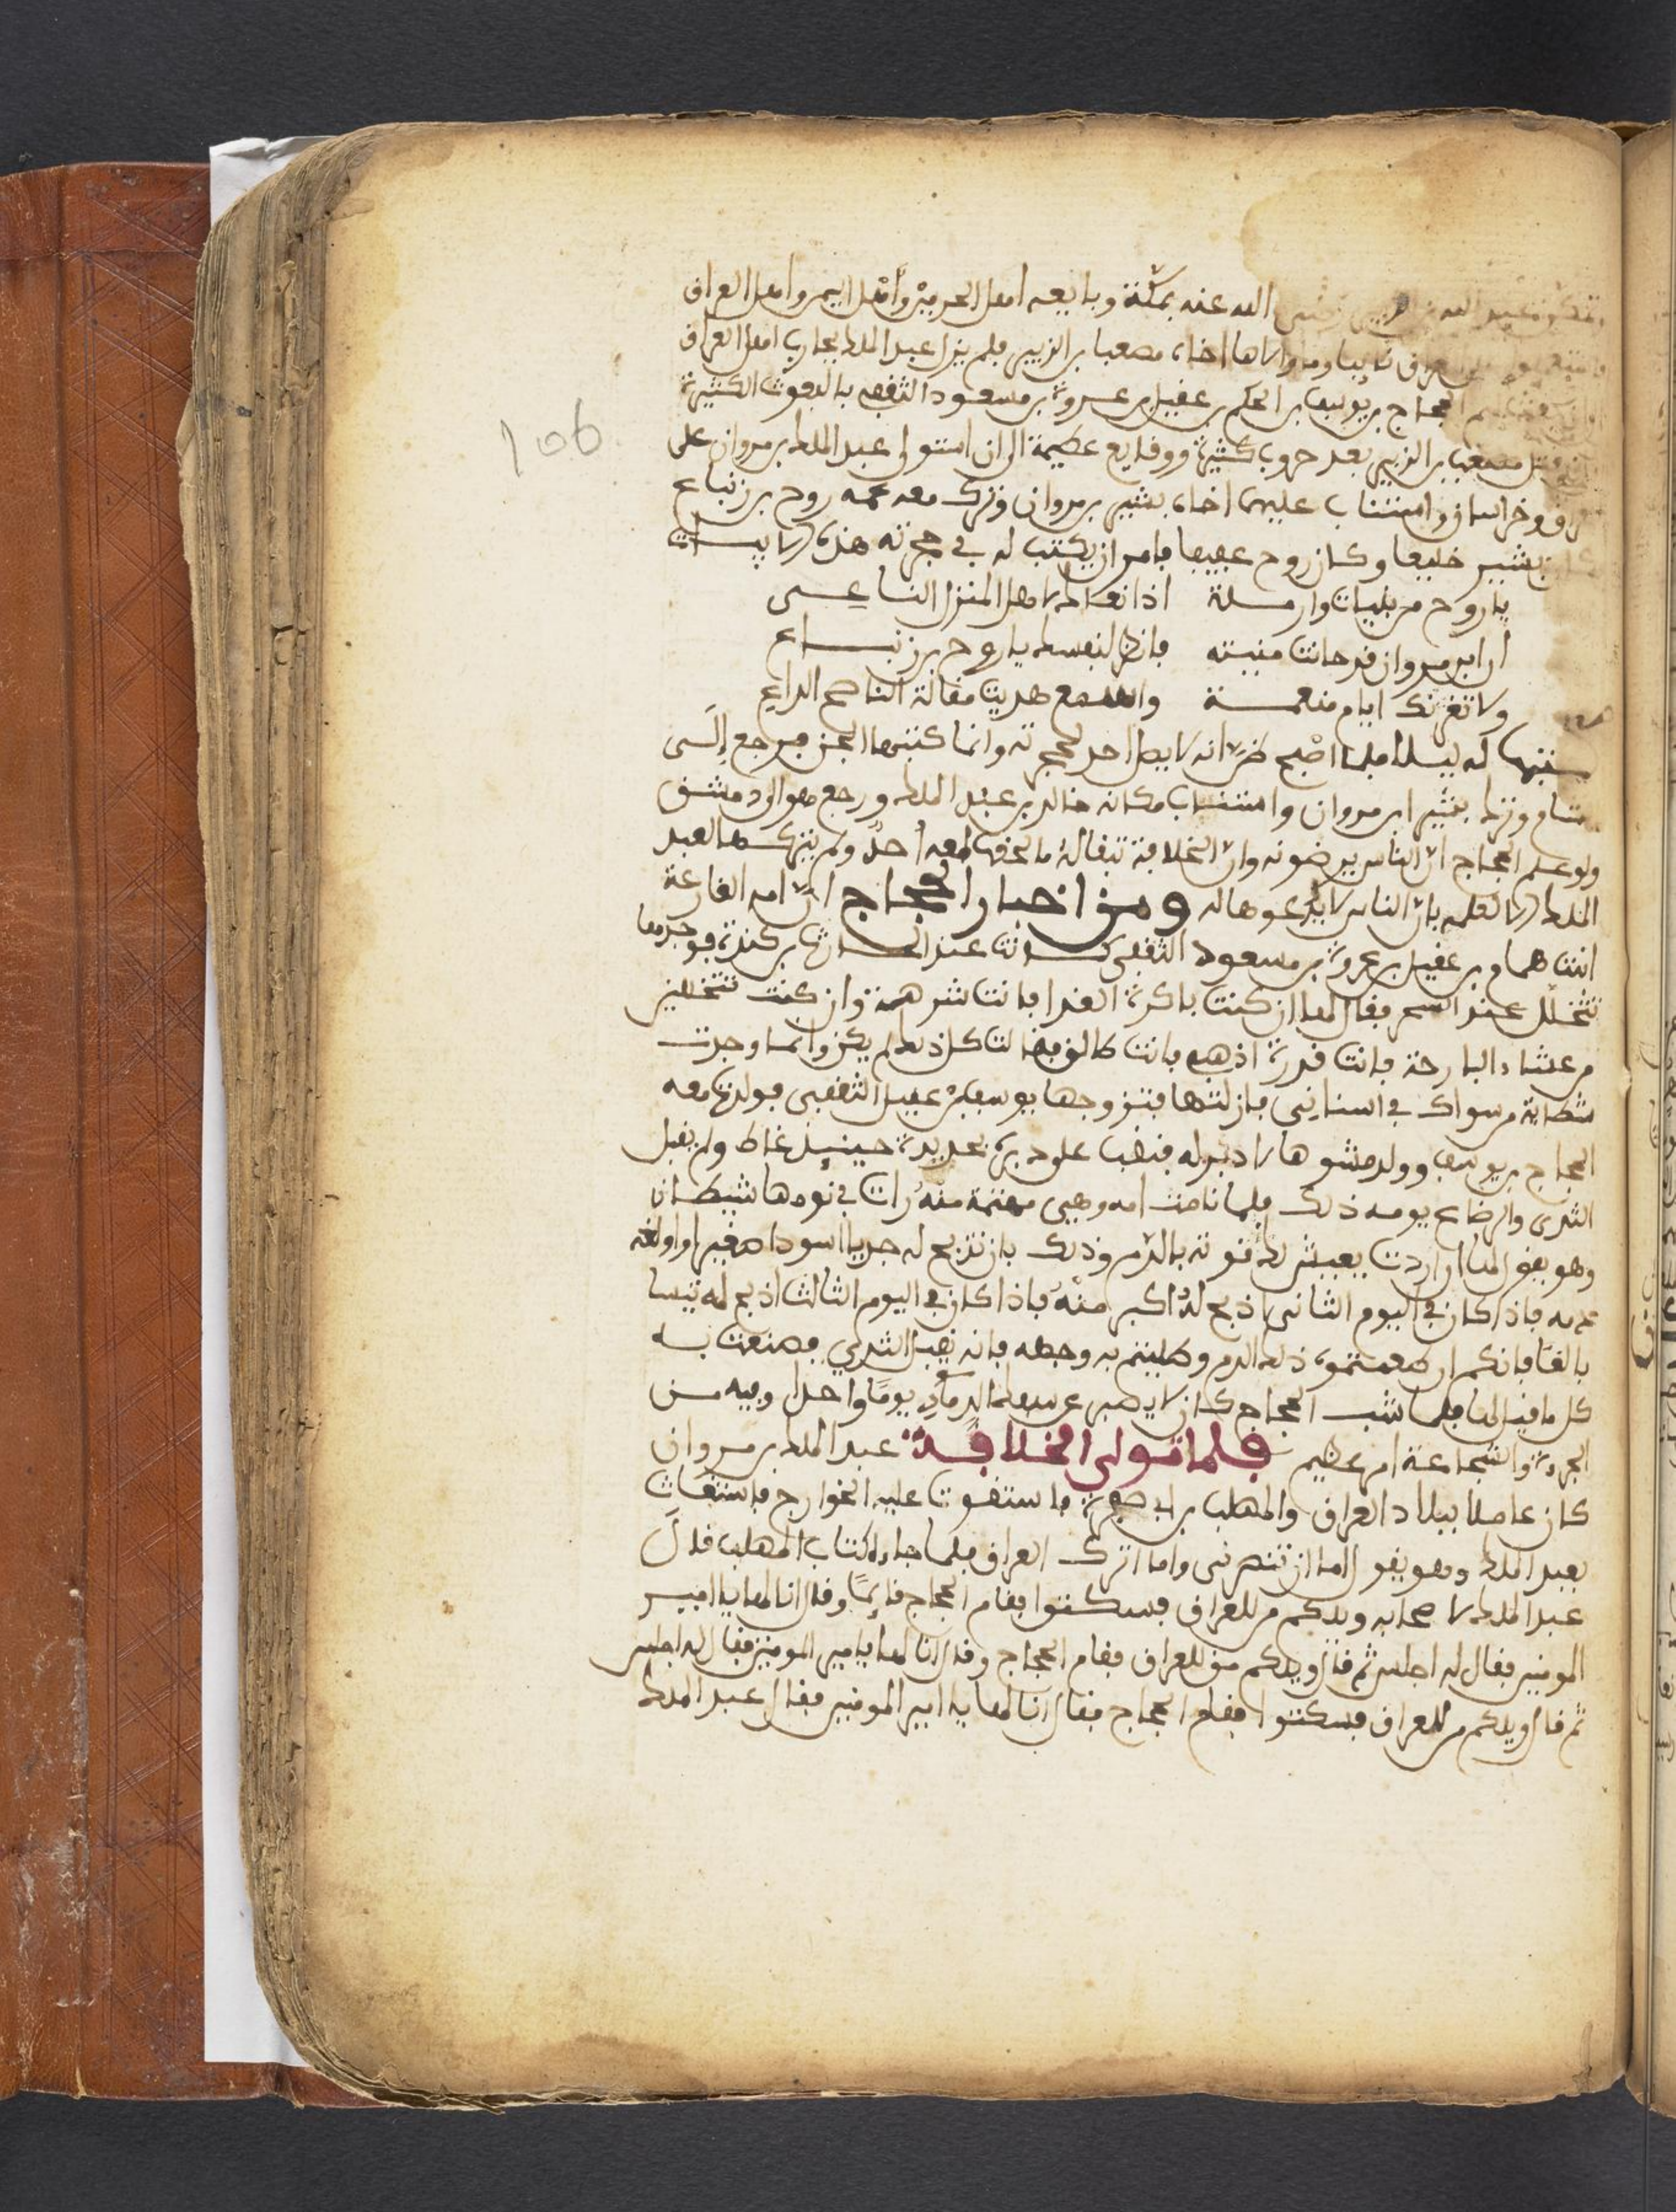 الله عنه بمكة وبايعه اهل الحرمين وأهل اليمن واهل العراق
اخاه مصعبا بن الزبير فلم يزل عبد الملك يحارب اهل العراق
الحجاج بن يوسف بن الحكم بن عقيل بن عروة بن مسعود الثقفي بالبعوث الكثيرة
قتل مصعب بن الزبير بعد حروب كثيرة ووقايع عظيمة الى ان استولى عبد الملك بن مروان على
وخراسان واستناب عليهما اخاه بشير بن مروان وترك معه عمه روح بن زنباع
بشير خليعا وكان روح عفيفا فامر ان يكتب له في حجرته هذه الابيات
يا روح من بنيات وارملة اذا نعاك لاهل المنزل الناعى
ان ابن مروان قد حانت منيته فانظر لنفسك يا روح بن زنباع
ولا تغرنك ايام منعمة واسمع هديت مقالة الناصح الداع
له ليلا فلما اصبح ظن انه لا يصل احد لحجرته وانما كتبتها الجن فرجع إلى
وترك بشير ابن مروان واستناب مكانه خالد بن عبد الملك ورجع هو الى دمشق
ولو علم الحجاج ان الناس يرضونه وان الخلافة تبقى له ما لحقها معه احد ولم يتركها لعبد
الملك الا لعلمه بان الناس لا يدعوها له ومن اخبار الحجاج ان امه الفارعة
ابنت همام بن عقيل بن عروة بن مسعود الثقفي كانت عند الحارث بن كندة فوجدها
تتخلل عند السحر فقال لها ان كنت باكرة الغدا فانت شرهة وان كنت تتخللين
من عشاء البارحة فانت قدرة اذهبي فانت طالق فقالت كل ذلك لم يكن وانما وجدت
شظاية من سواك في اسنانى فازلتها فتزوجها يوسف بن عقيل الثقفى فولدت معه
الحجاج بن يوسف وولد مشوها لا دبر له فنقب على دبره بحديدة حينيذ غاط ولم يقبل
الثدى والرضاع يومه ذلك فلما نامت امه وهيى مهتمة منه رات في نومها شيطان
وهو يقول لها ان اردت يعيش لك قوته بالدم وذلك بان تذبح له جديا اسودا صغيرا واولغه
دمه فاذا كان في اليوم الثانى اذبح له اكبر منه فاذا كان في اليوم الثالث اذبح له تيسا
بالغا فانكم ان طعمتموه ذلك الدم وطليتم به وجهه فانه يقبل الثدي فصنعت به
كل ما قيل لها فلما شب الحجاج كان لا يصبر عن سفك الدماء يومًا واحدا وفيه من
الجرءة والشجاعة امر عظيم فلما تولى الخلافة عبد الملك بن مروان
كان عاملا ببلاد العراق والمهلب بن ابي صفرة فاستقوت عليه الخوارج فاستغاث
بعبد الملك وهو يقول اما ان تنصرنى واما اترك العراق فلما جاءه كتاب المهلب قال
عبد الملك لاصحابه ويلكم من للعراق فسكتوا فقام الحجاج قايمًا وقال انا لها يا امير
المومنين فقال له اجلس ثم قال ويلكم من للعراق فقام الحجاج وقال انا لها يا امير المومنين فقال له اجلس
ثم قال ويلكم من للعراق فسكتوا فقام الحجاج فقال انا لها يا امير المومنين فقال عبد الملك
106